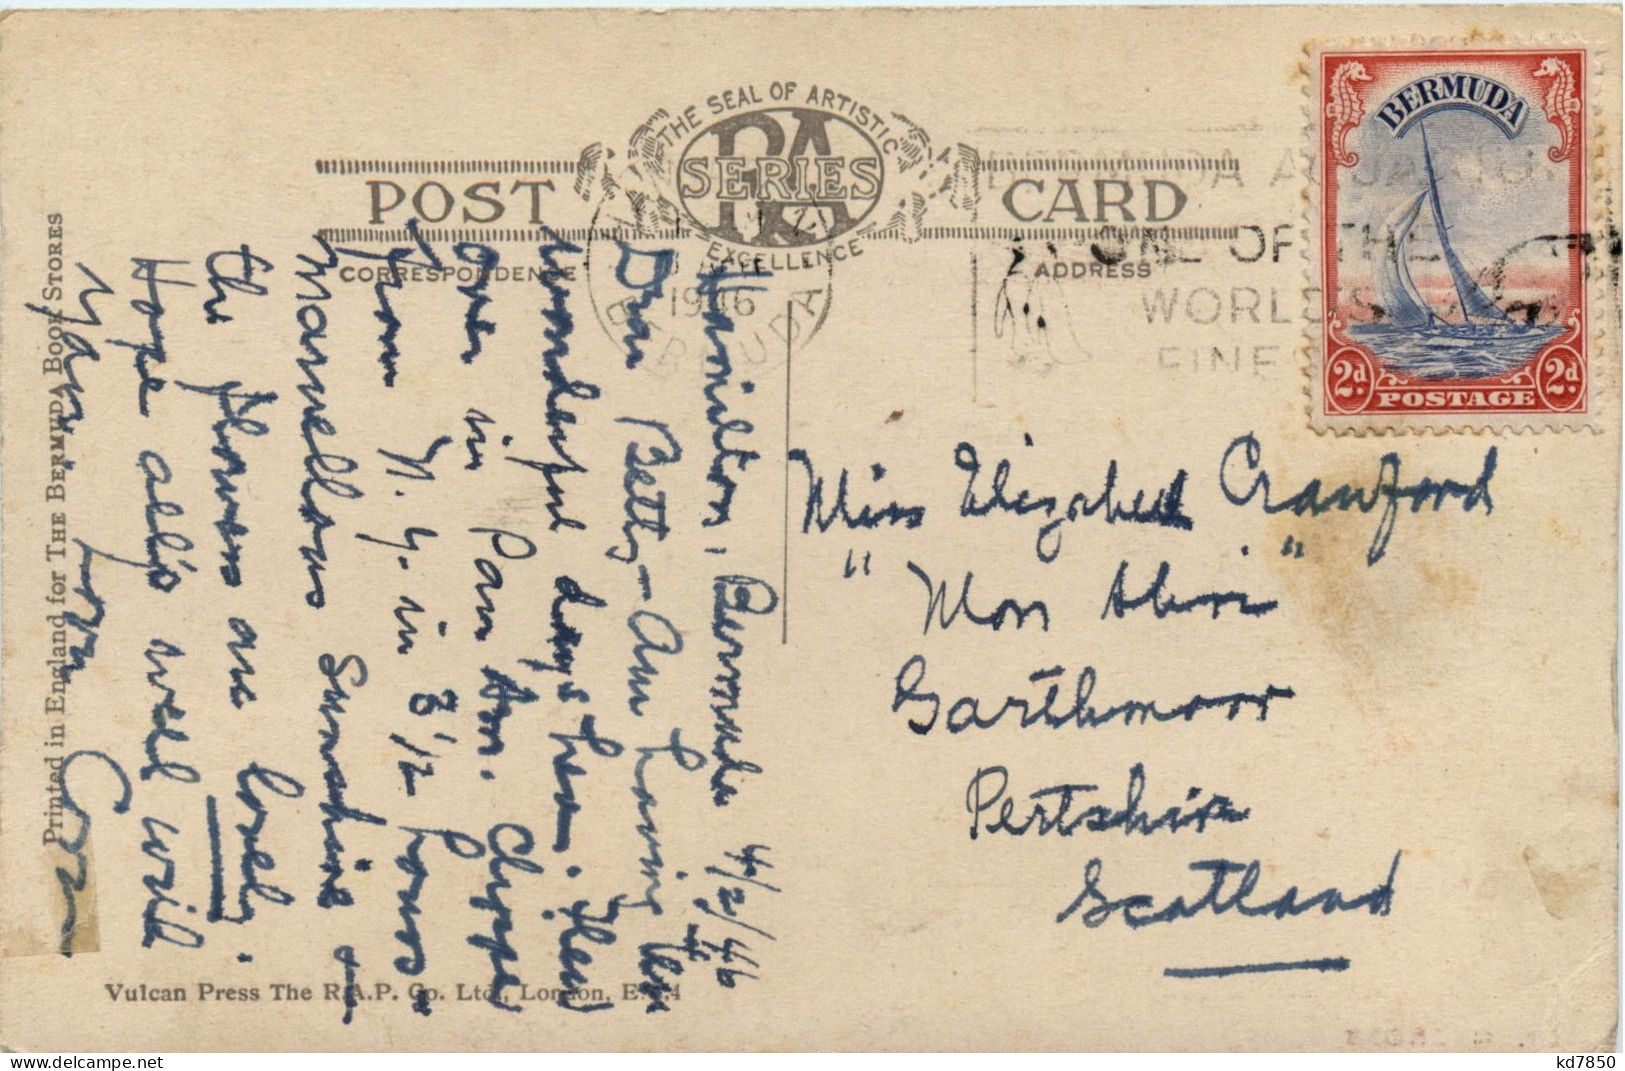 THE SEAL OF ARTISTIC
RA
SERIES
EXCELLENCE
POST CARD
CORRESPONDENCE
ADDRESS
BERMUDA
2d. POSTAGE 2d.
ONE OF THE
WORLD'S
FINE
1946
BERMUDA
Hamilton, Bermuda 4/2/46
Dear Betty-Ann Having
wonderful days here. Flew
over in Pan Am. Clipper
from N.Y. in 3 1/2 hours –
Marvellous Sunshine &
the flowers are lovely.
Hope all's well with
Miss Elizabeth Crawford
"Mon Abri"
Garthmoor
Pertshire
Scotland
Printed in England for THE BERMUDA BOOK STORES
Vulcan Press The R.A.P. Co. Ltd., London, E.C.4
kd7850